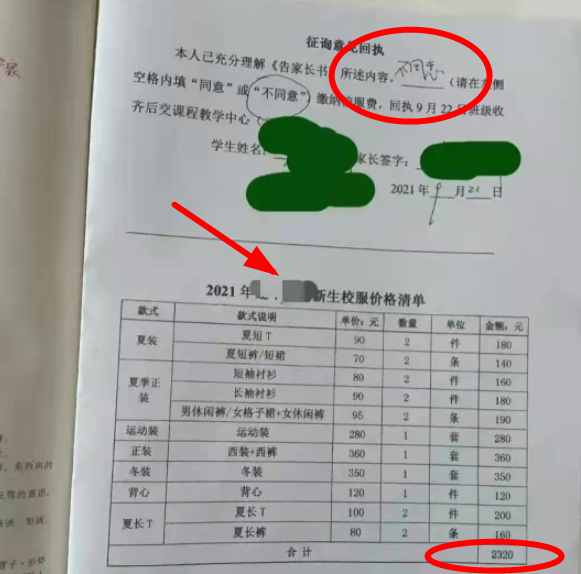 征询意见回执
本人已充分理解《告家长书 所述内容,不同意(请在左侧
空格内填“同意”或“不同意”)缴纳校服费,回执9月22日班级收
齐后交课程教学中心(
学生姓名: 家长签字:
2021年9月22日
2021年 新生校服价格清单
款式 款式说明 单价:元 数量 单位 金额:元
夏装 夏短T 90 2 件 180
夏短裤/短裙 70 2 条 140
夏季正装 短袖衬衫 80 2 件 160
长袖衬衫 90 2 件 180
男休闲裤/女格子裙+女休闲裤 95 2 条 190
运动装 运动装 280 1 套 280
正装 西装+西裤 360 1 套 360
冬装 冬装 350 1 套 350
背心 背心 120 1 件 120
夏长T 夏长T 100 2 件 200
夏长裤 80 2 条 160
合计 2320